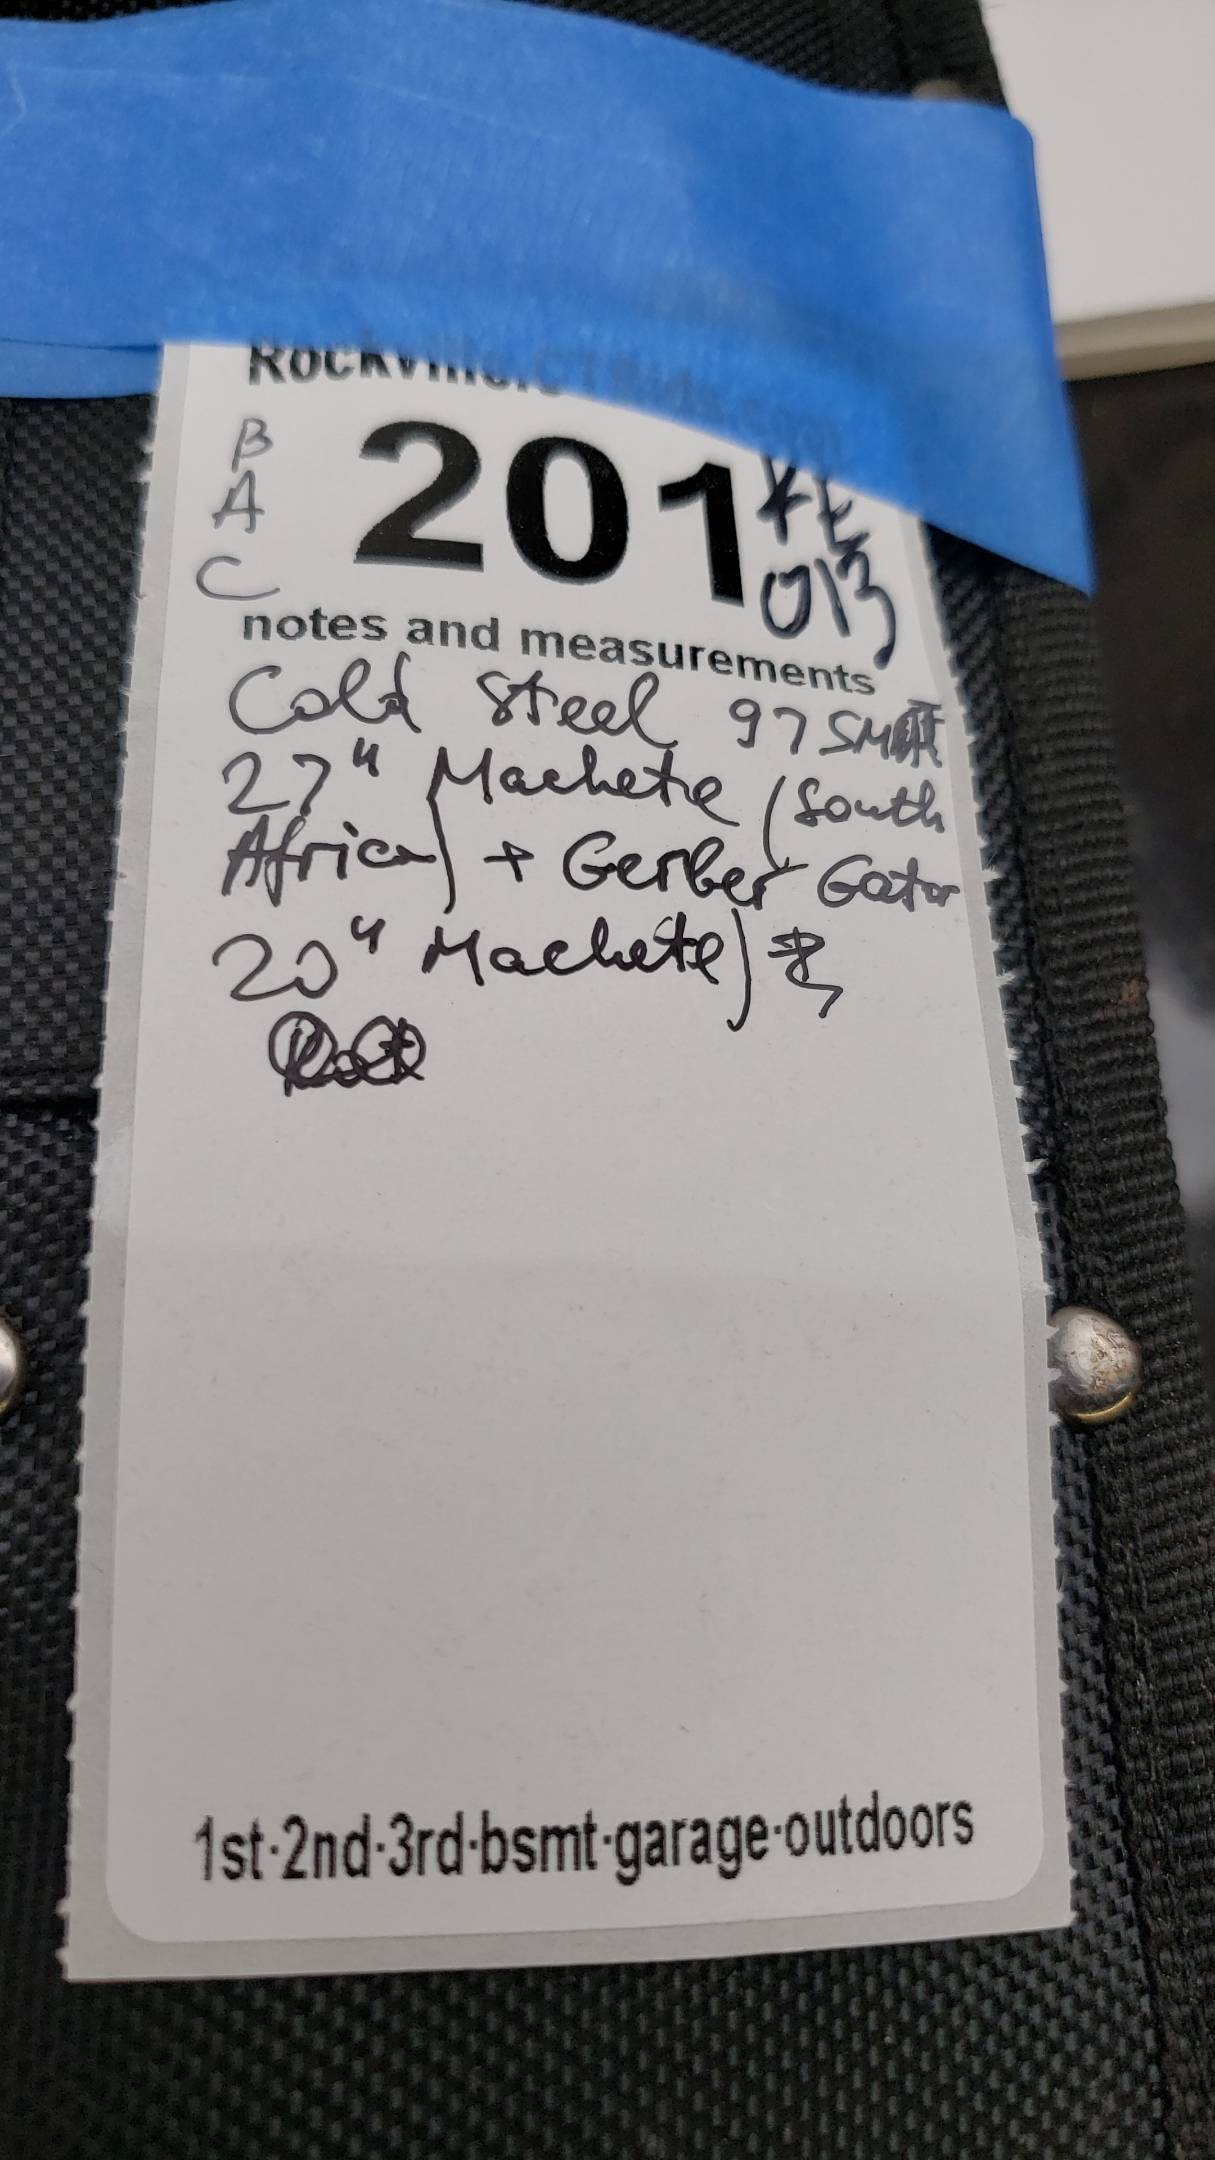 Rockville.CT
B
A
C
201
013
notes and measurements
Cold Steel 97SM
27" Machete (South
Africa) + Gerber Gator
20" Machete)
1st·2nd·3rd·bsmt·garage·outdoors